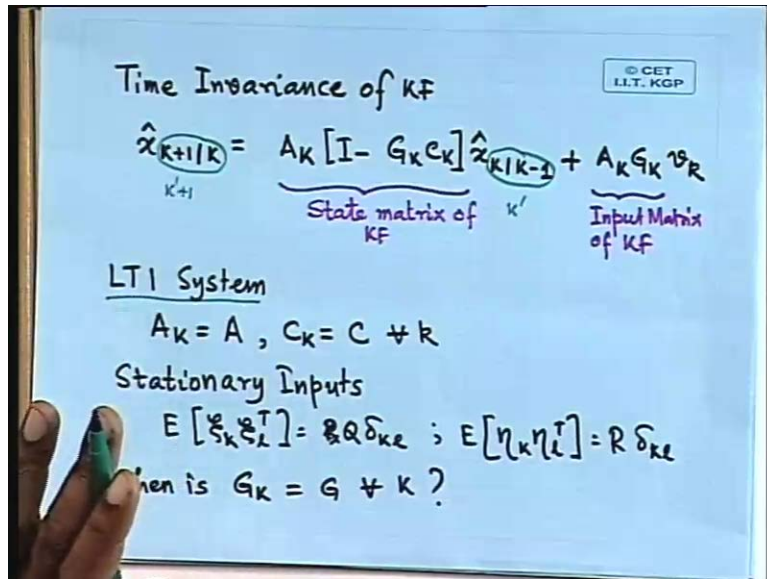 Time Invariance of KF
© CET
I.I.T. KGP
x̂_{K+1/K} = A_K [I - G_K C_K] x̂_{K/K-1} + A_K G_K v_K
K'+1
K'
State matrix of KF
Input Matrix of KF
LTI System
A_K = A , C_K = C ∀ k
Stationary Inputs
E [ξ_K ξ_l^T] = Q δ_{Kl} ; E [η_K η_l^T] = R δ_{Kl}
hen is G_K = G ∀ K ?